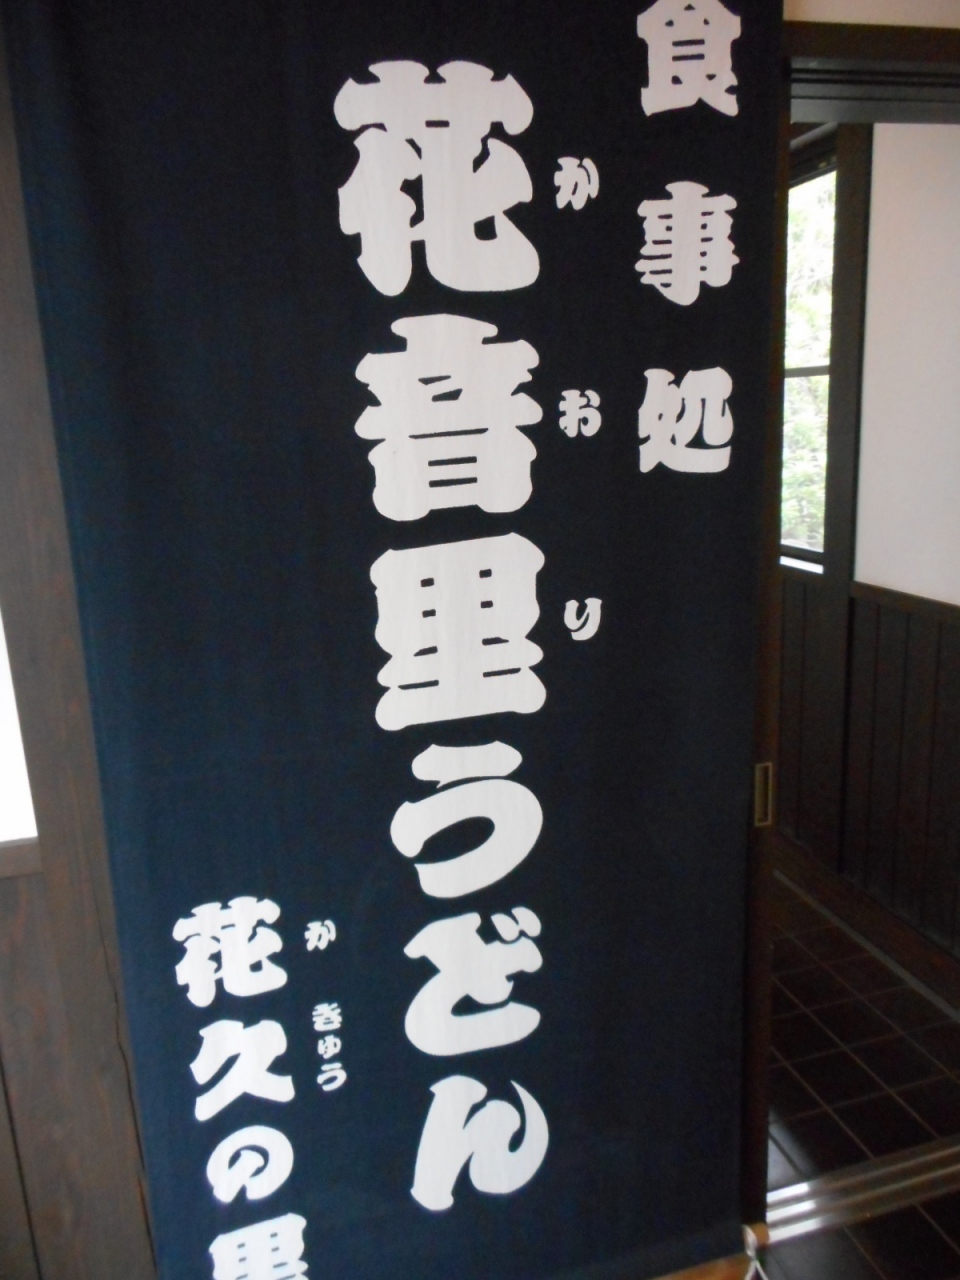 食事処
かおり
花音里うどん
かきゅう
花久の里